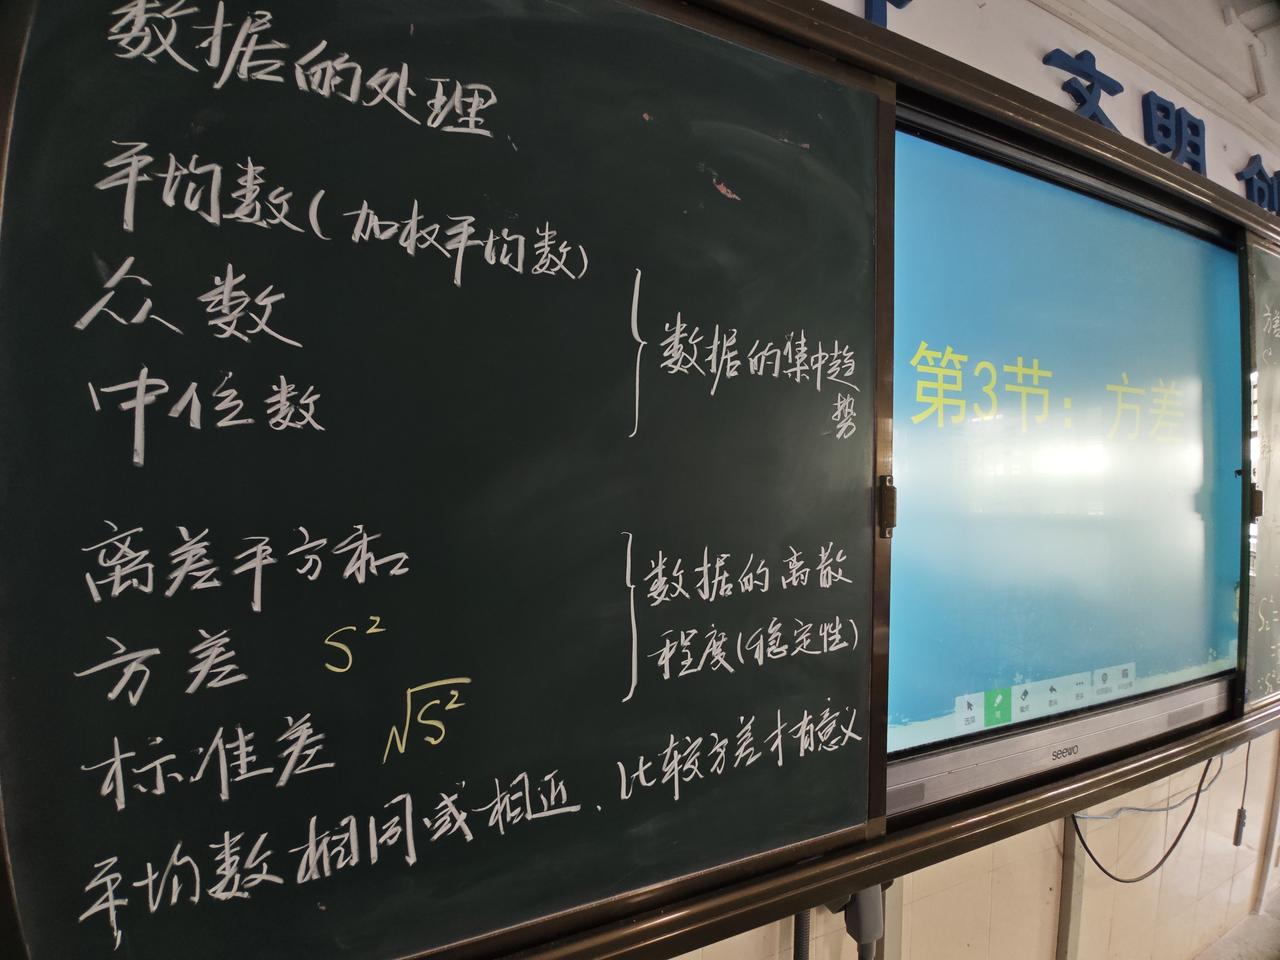 数据的处理
平均数(加权平均数)
众数
中位数
数据的集中趋
势
离差平方和
方差 S²
标准差 √S²
数据的离散
程度(稳定性)
平均数相同或相近、比较方差才有意义
文明创
第3节：方差
seewo